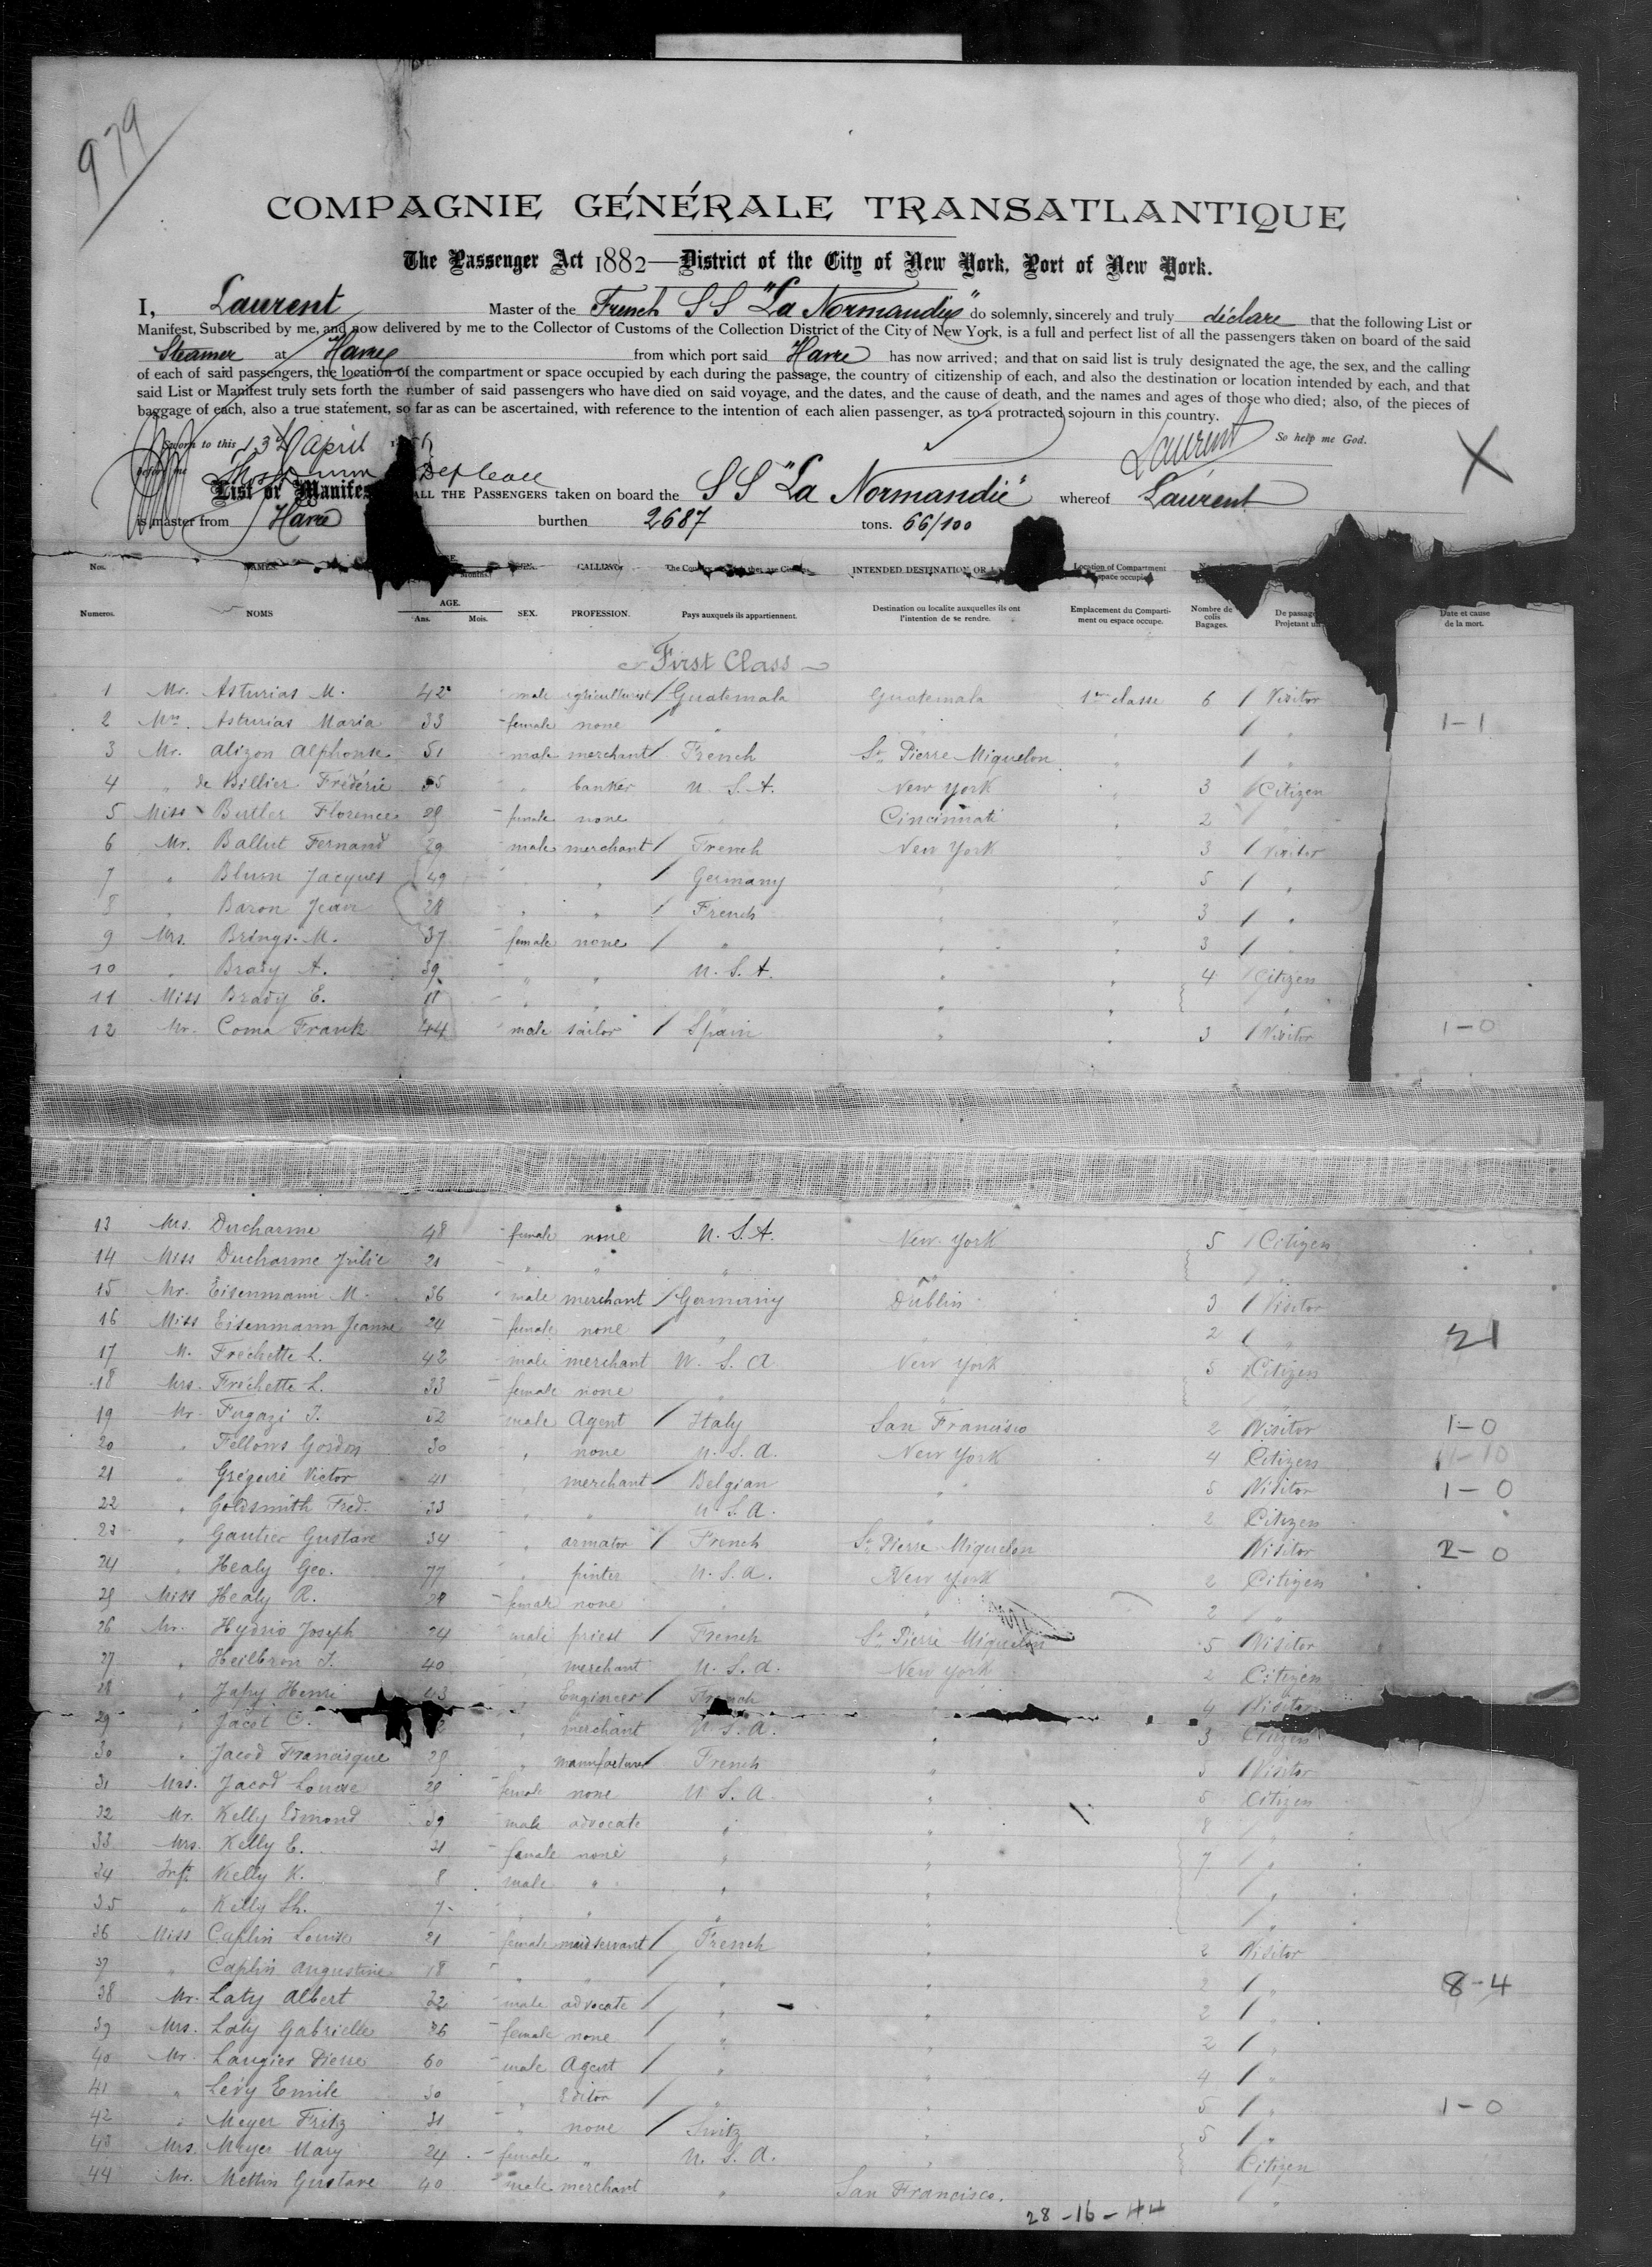 979
COMPAGNIE GÉNÉRALE TRANSATLANTIQUE
The Passenger Act 1882—District of the City of New York, Port of New York.
I, Laurent Master of the French SS "La Normandie" do solemnly, sincerely and truly déclare that the following List or
Manifest, Subscribed by me, and now delivered by me to the Collector of Customs of the Collection District of the City of New York, is a full and perfect list of all the passengers taken on board of the said
Steamer at Havre from which port said Havre has now arrived; and that on said list is truly designated the age, the sex, and the calling
of each of said passengers, the location of the compartment or space occupied by each during the passage, the country of citizenship of each, and also the destination or location intended by each, and that
said List or Manifest truly sets forth the number of said passengers who have died on said voyage, and the dates, and the cause of death, and the names and ages of those who died; also, of the pieces of
baggage of each, also a true statement, so far as can be ascertained, with reference to the intention of each alien passenger, as to a protracted sojourn in this country.
Sworn to this 13 April Laurent So help me God. X
before me
List or Manifes ALL THE PASSENGERS taken on board the SS "La Normandie" whereof Laurent
is master from Havre burthen 2687 tons. 66/100
Nos. NAMES. Months. CALLING. INTENDED DESTINATION OR Location of Compartment
space occupied
Numeros. NOMS AGE. Ans. Mois. SEX. PROFESSION. Pays auxquels ils appartiennent. Destination ou localite auxquelles ils ont l'intention de se rendre. Emplacement du Compartiment ou espace occupe. Nombre de colis Bagages. De passage Projetant un Date et cause de la mort.
First Class
1 Mr. Asturias M. 42 male agriculturist / Guatemala Guatemala 1ere classe 6 / Visitor
2 Mme Asturias Maria 33 female none / " " / " 1-1
3 Mr. Alizon Alphonse 51 male merchant / French St Pierre Miquelon " / "
4 " de Billier Frédéric 55 " banker U.S.A. New York " 3 / Citizen
5 Miss Butler Florence 28 female none " Cincinnati " 2 /
6 Mr. Ballut Fernand 29 male merchant / French New York 3 / Visitor
7 " Blum Jacques 49 " " / Germany " 5 / "
8 " Baron Jean 28 " " / French " 3 / "
9 Mrs. Brings M. 37 female none / " " 3 / "
10 " Brady A. 39 " " U.S.A. " 4 / Citizen
11 Miss Brady E. 11 " " " "
12 Mr. Coma Frank 44 male sailor / Spain " " 3 / Visitor 1-0
13 Mrs. Ducharme 48 female none U.S.A. New York 5 / Citizen
14 Miss Ducharme Julie 21 " " " " / "
15 Mr. Eisenmann M. 36 male merchant / Germany Dublin 3 / Visitor
16 Miss Eisenmann Jeanne 24 female none / " " 2 / " 21
17 M. Frechette L. 42 male merchant U.S.A. New York 5 / Citizen
18 Mrs. Frechette L. 33 female none " " "
19 Mr. Fugazi J. 52 male Agent / Italy San Francisco 2 / Visitor 1-0
20 " Fellows Gordon 30 " none U.S.A. New York 4 Citizen 11-10
21 " Grégoire Victor 41 " merchant / Belgian " " 5 Visitor 1-0
22 " Goldsmith Fred. 33 " " U.S.A. " 2 Citizen
23 " Gautier Gustave 34 " armator / French St Pierre Miquelon Visitor 2-0
24 " Healy Geo. 77 " pinter U.S.A. New York 2 Citizen
25 Miss Healy R. 28 female none " " 2 / "
26 Mr. Hydrio Joseph 24 male priest / French St Pierre Miquelon 5 Visitor
27 " Heilbron J. 40 " merchant U.S.A. New York 2 Citizen
28 " Japy Henri 43 " Engineer / French " 4 Visitor
29 " Jacot C. " merchant U.S.A. " 3 Citizen
30 " Jacod Francisque 29 " manufacture / French " 3 / Visitor
31 Mrs. Jacod Louise 28 female none U.S.A. " 5 Citizen
32 Mr. Kelly Edmond 39 male advocate " " 8 / "
33 Mrs. Kelly E. 31 female none " " 7 / "
34 Inft. Kelly K. 8 male " " " / "
35 " Kelly Sh. 7 " " " " / "
36 Miss Caplin Louise 21 female maid servant / French " 2 Visitor
37 " Caplin Augustine 18 " " / " " 2 / " 8-4
38 Mr. Laty Albert 32 male advocate / " " 2 / "
39 Mrs. Laty Gabrielle 26 female none / " " 2 / "
40 Mr. Laugier Pierre 60 male Agent / " " 4 / "
41 " Lévy Emile 30 " Editor / " " 5 / " 1-0
42 " Meyer Fritz 31 " none / Switz " 5 / "
43 Mrs. Meyer Mary 24 female " U.S.A. " Citizen
44 Mr. Mettin Gustave 40 male merchant " San Francisco. / "
28-16-44